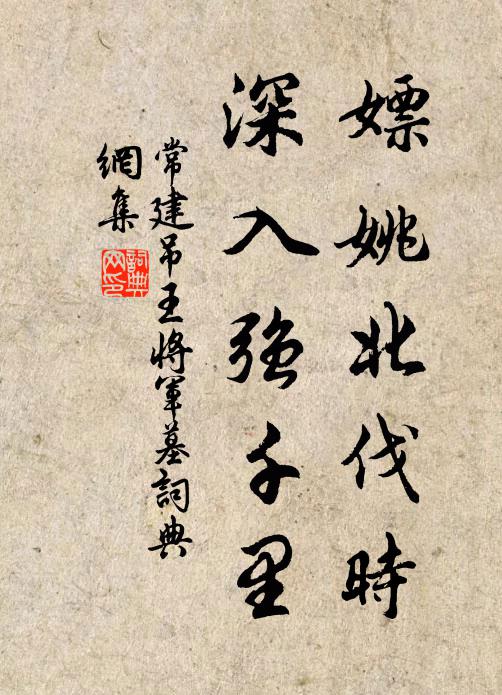 嫖姚北伐時
深入強千里
常建吊王將軍墓詞典
網集
詞典
网印